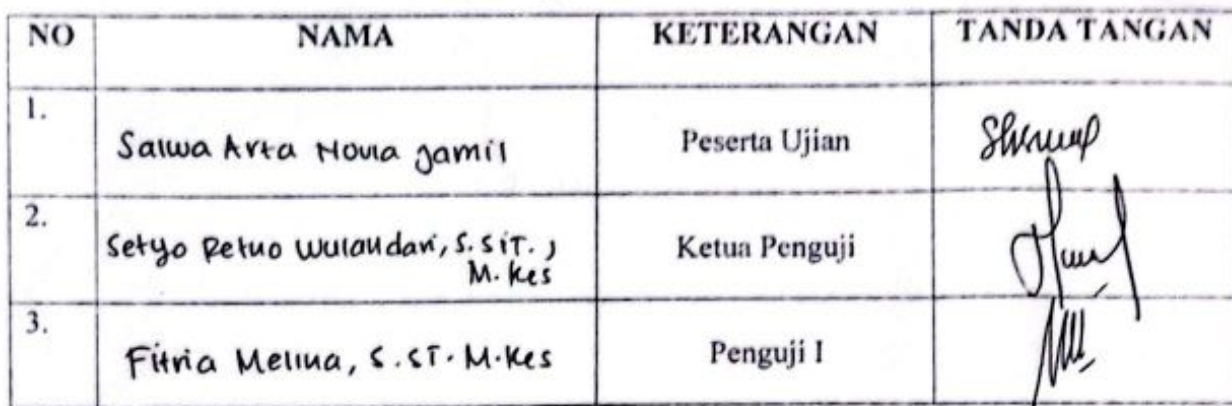 NO NAMA KETERANGAN TANDA TANGAN
1. Salwa Arta Novia Jamil Peserta Ujian
2. Setyo Retno Wulandari, S.SiT., Ketua Penguji
M.Kes
3. Fitria Melina, S.ST. M.Kes Penguji I